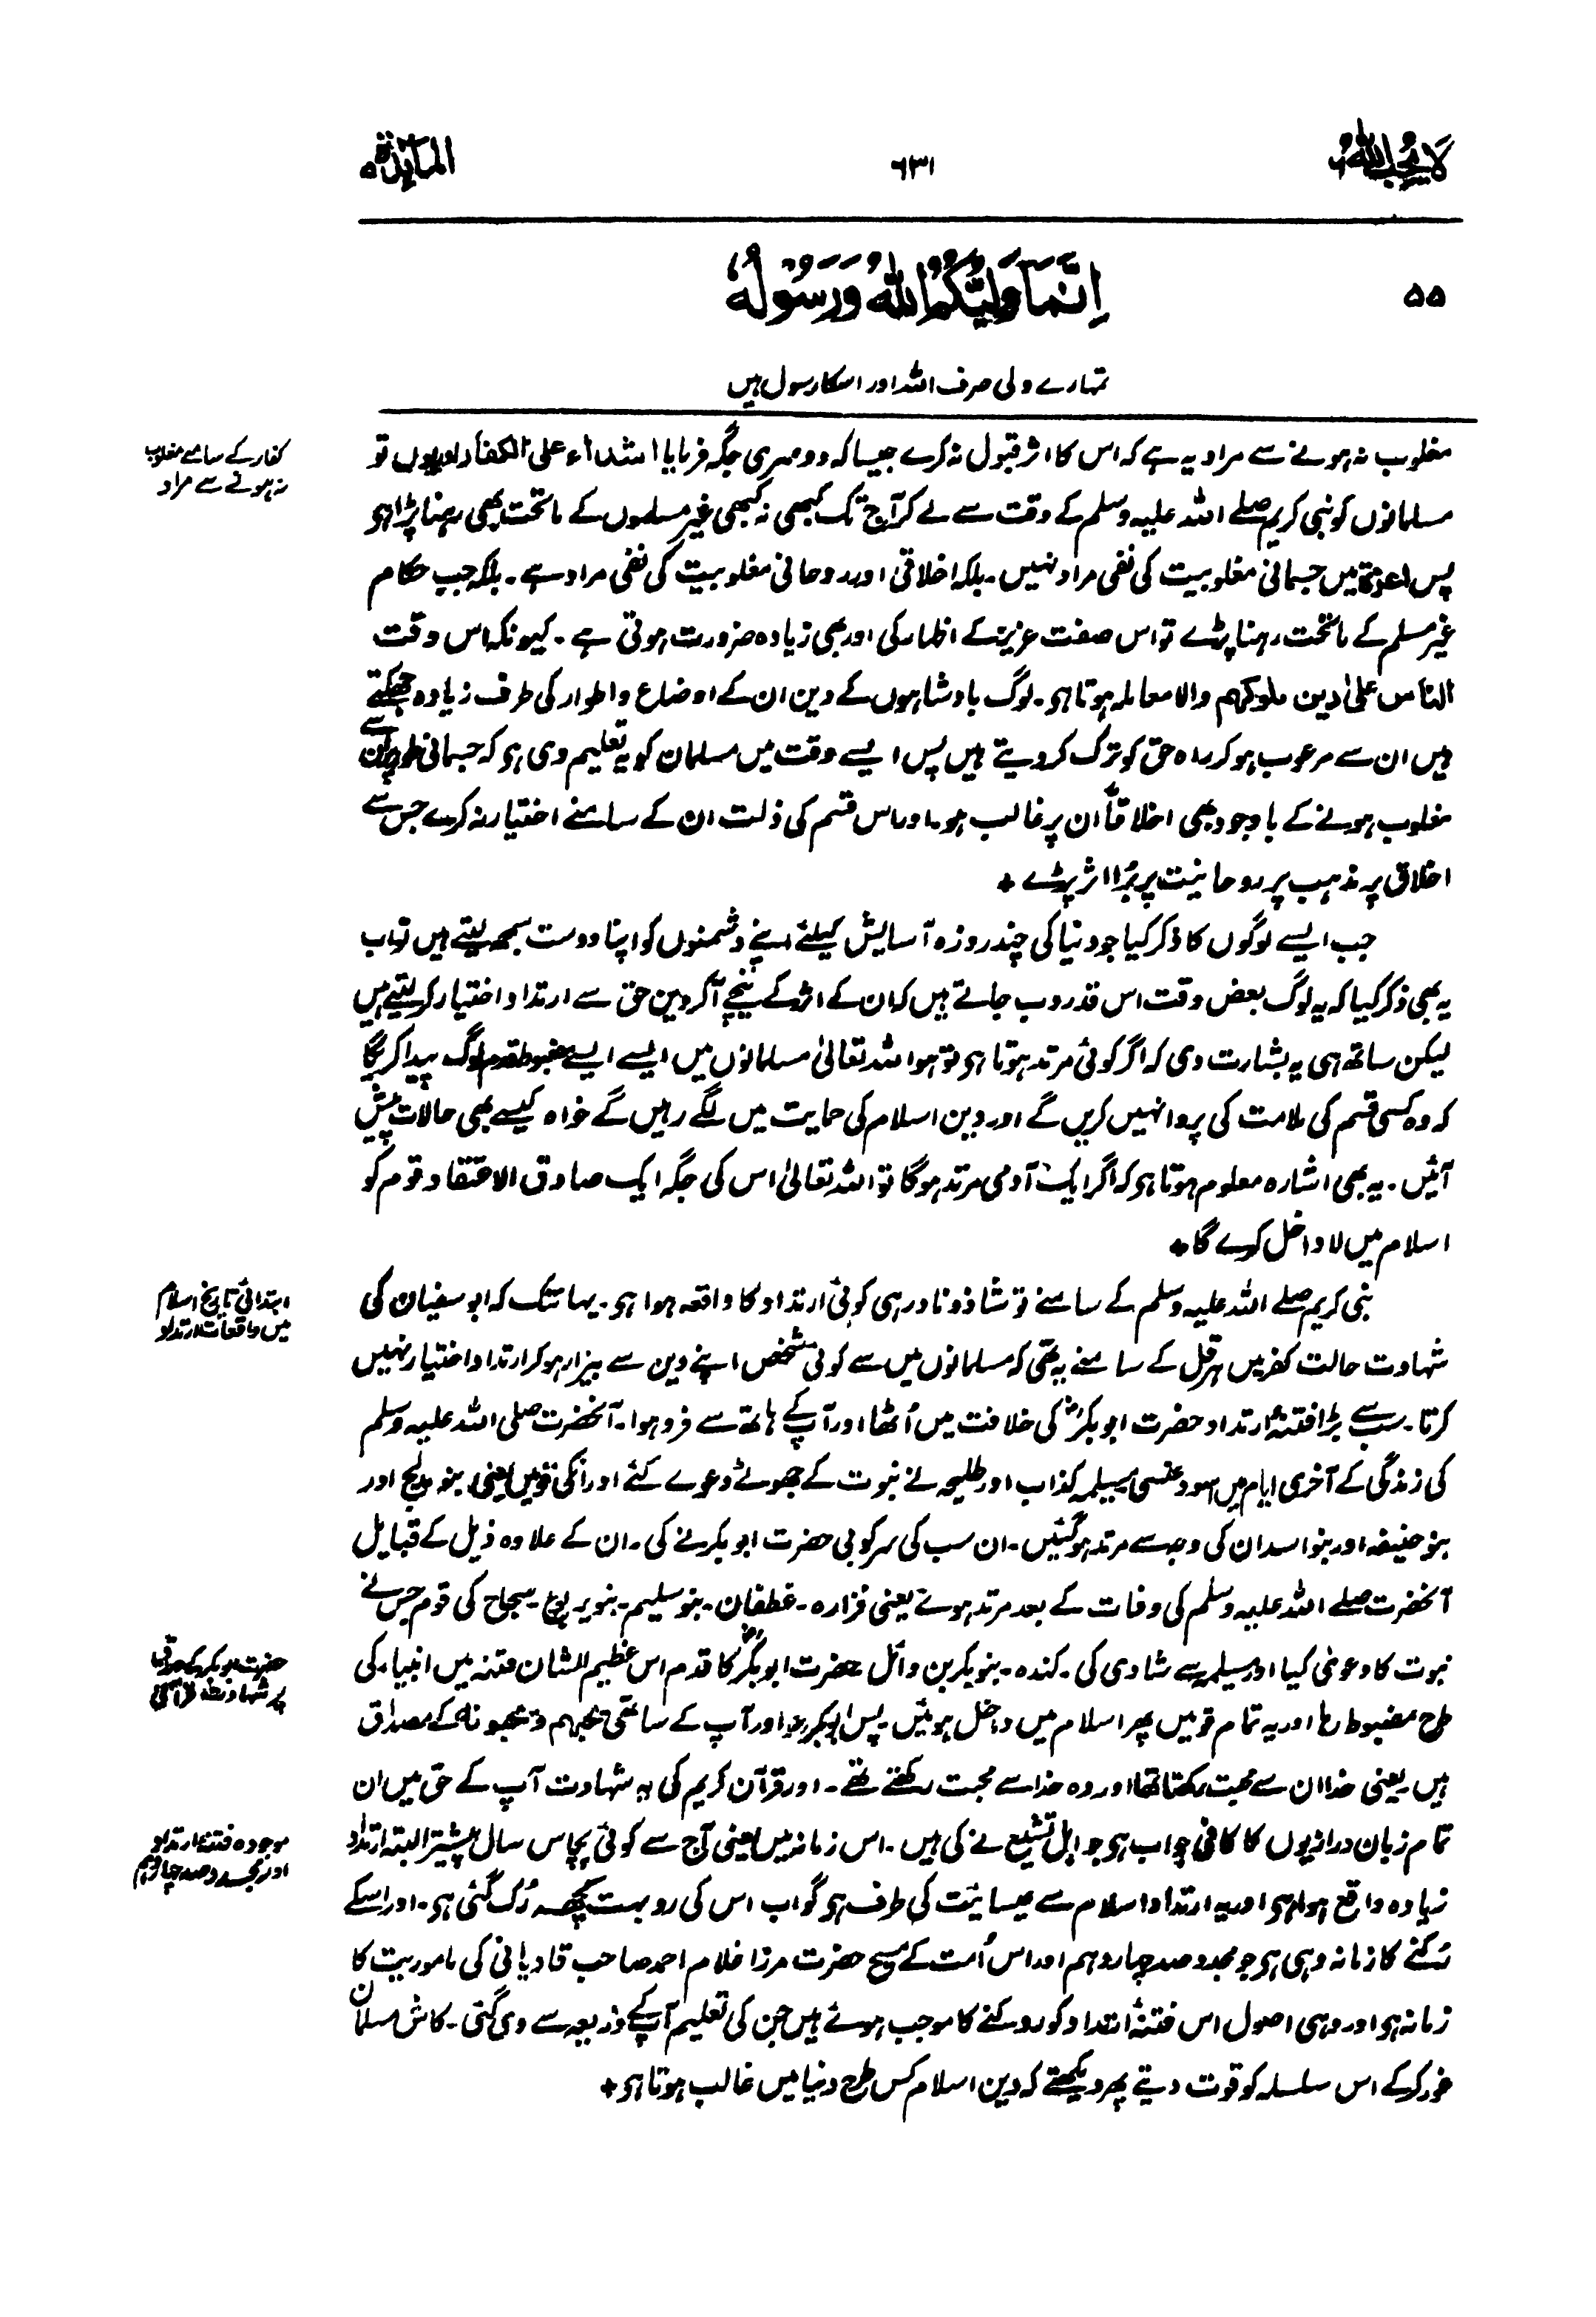 لَا يُحِبُّ اللّٰهُ ٦
٦٣١
المَآئدة ٥
۵۵
اِنَّمَا وَلِيُّكُمُ اللّٰهُ وَرَسُوْلُهٗ
تمہارے ولی صرف اللہ اور اسکا رسول ہیں
کفار کے سامنے مغلوب
نہ ہونے سے مراد
مغلوب نہ ہونے سے مراد یہ ہے کہ اس کا اثر قبول نہ کرے جیسا کہ دوسری جگہ فرمایا اشداء علی الکفار اور یوں تو
مسلمانوں کو نبی کریم صلے اللہ علیہ وسلم کے وقت سے لے کر آج تک کبھی نہ کبھی غیر مسلموں کے ماتحت بھی رہنا پڑا ہو
پس اعزۃ میں جسمانی مغلوبیت کی نفی مراد نہیں۔ بلکہ اخلاقی اور روحانی مغلوبیت کی نفی مراد ہے۔ بلکہ جب حکام
غیر مسلم کے ماتحت رہنا پڑے تو اس صفت عزیز کے اظہار کی اور بھی زیادہ ضرورت ہوتی ہے۔ کیونکہ اس وقت
الناس علیٰ دین ملوکہم والا معاملہ ہوتا ہو۔ لوگ بادشاہوں کے دین ان کے اوضاع و اطوار کی طرف زیادہ جھکتے
ہیں ان سے مرعوب ہو کر راہ حق کو ترک کر دیتے ہیں پس ایسے وقت میں مسلمان کو یہ تعلیم دی ہو کہ جسمانی طور پر ان سے
مغلوب ہونے کے باوجود بھی اخلاقاً ان پر غالب ہو۔ اور اس قسم کی ذلت ان کے سامنے اختیار نہ کرے جس سے
اخلاق پر مذہب پر روحانیت پر بُرا اثر پڑے +
جب ایسے لوگوں کا ذکر کیا جو دنیا کی چند روزہ آسایش کیلئے اپنے دشمنوں کو اپنا دوست سمجھ لیتے ہیں تو اب
یہ بھی ذکر کیا کہ یہ لوگ بعض وقت اس قدر دب جاتے ہیں کہ ان کے اثر کے نیچے آ کر دین حق سے ارتداد اختیار کر لیتے ہیں
لیکن ساتھ ہی یہ بشارت دی کہ اگر کوئی مرتد ہوتا ہو تو ہو اللہ تعالیٰ مسلمانوں میں ایسے ایسے مضبوط قدم لوگ پیدا کریگا
کہ وہ کسی قسم کی ملامت کی پروا نہیں کریں گے اور دین اسلام کی حمایت میں لگے رہیں گے خواہ کیسے بھی حالات پیش
آئیں۔ یہ بھی اشارہ معلوم ہوتا ہو کہ اگر ایک آدمی مرتد ہو گا تو اللہ تعالیٰ اس کی جگہ ایک صادق الاعتقاد قوم کو
اسلام میں لا داخل کرے گا +
ابتدائی تاریخ اسلام
میں واقعات ارتداد
نبی کریم صلے اللہ علیہ وسلم کے سامنے تو شاذ و نادر ہی کوئی ارتداد کا واقعہ ہوا ہو۔ یہانتک کہ ابو سفیان کی
شہادت حالت کفر میں ہرقل کے سامنے یہ تھی کہ مسلمانوں میں سے کوئی شخص اپنے دین سے بیزار ہو کر ارتداد اختیار نہیں
کرتا۔ سب سے بڑا فتنۂ ارتداد حضرت ابو بکرؓ کی خلافت میں اُٹھا اور آپ کے ہاتھ سے فرو ہوا۔ آنحضرت صلی اللہ علیہ وسلم
کی زندگی کے آخری ایام میں اسود عنسی مسیلمہ کذاب اور طلیحہ نے نبوت کے جھوٹے دعوے کئے اور انکی قومیں یعنی بنو مدلج اور
بنو حنیفہ اور بنو اسد ان کی وجہ سے مرتد ہو گئیں۔ ان سب کی سرکوبی حضرت ابو بکر نے کی۔ ان کے علاوہ ذیل کے قبایل
آنحضرت صلے اللہ علیہ وسلم کی وفات کے بعد مرتد ہوئے یعنی فزارہ۔ غطفان۔ بنو سلیم۔ بنو یربوع۔ سجاح کی قوم جس نے
حضرت ابو بکر کے
پر شہادت قرآنی
نبوت کا دعویٰ کیا اور مسیلمہ سے شادی کی۔ کندہ۔ بنو بکر بن وائل حضرت ابو بکرؓ کا قدم اس عظیم الشان فتنہ میں انبیاء کی
طرح مضبوط رہا اور یہ تمام قومیں پھر اسلام میں داخل ہوئیں۔ پس ابو بکرؓ اور آپ کے ساتھی یحبہم و یحبونہ کے مصداق
ہیں یعنی خدا ان سے محبت رکھتا تھا اور وہ خدا سے محبت رکھتے تھے۔ اور قرآن کریم کی یہ شہادت آپ کے حق میں ان
موجودہ فتنۂ ارتداد
اور مجدد صد چہاردہم
تمام زبان درازیوں کا کافی جواب ہو جو اہل تشیع نے کی ہیں۔ اس زمانہ میں یعنی آج سے کوئی پچاس سال پیشتر البتہ ارتداد
زیادہ واقع ہوا ہو اور یہ ارتداد اسلام سے عیسائیت کی طرف ہو گو اب اس کی رو بہت کچھ رُک گئی ہو۔ اور اسکے
رُکنے کا زمانہ وہی ہو جو مجدد صد چہاردہم اور اس اُمت کے مسیح حضرت مرزا غلام احمد صاحب قادیانی کی ماموریت کا
زمانہ ہو اور وہی اصول اس فتنۂ ارتداد کو روکنے کا موجب ہوئے ہیں جن کی تعلیم آپ کے ذریعہ سے دی گئی۔ کاش مسلمان
غور کر کے اس سلسلہ کو قوت دیتے پھر دیکھتے کہ دین اسلام کس طرح دنیا میں غالب ہوتا ہو +